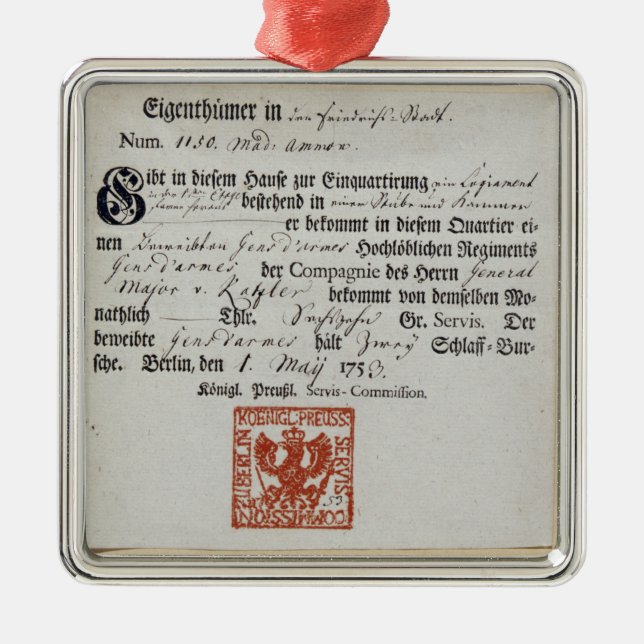 Eigenthümer in der Friedrichs-Stadt.
Num. 1150. Mad: Ammon.
Gibt in diesem Hause zur Einquartirung ein Logiament
in der Etage
bestehend in einer Stube und Kammer
er bekommt in diesem Quartier ei-
nen Beweibten Gens d'armes Hochlöblichen Regiments
Gens d'armes der Compagnie des Herrn General
Major v. Katzler bekommt von demselben Mo-
nathlich Thlr. Sechszehn Gr. Servis. Der
beweibte Gens d'armes hält Zwey Schlaff-Bur-
sche. Berlin, den 1. Maij 1753.
Königl. Preußl. Servis-Commission.
KOENIGL:PREUSS: SERVIS COMMISSION ZU BERLIN
53